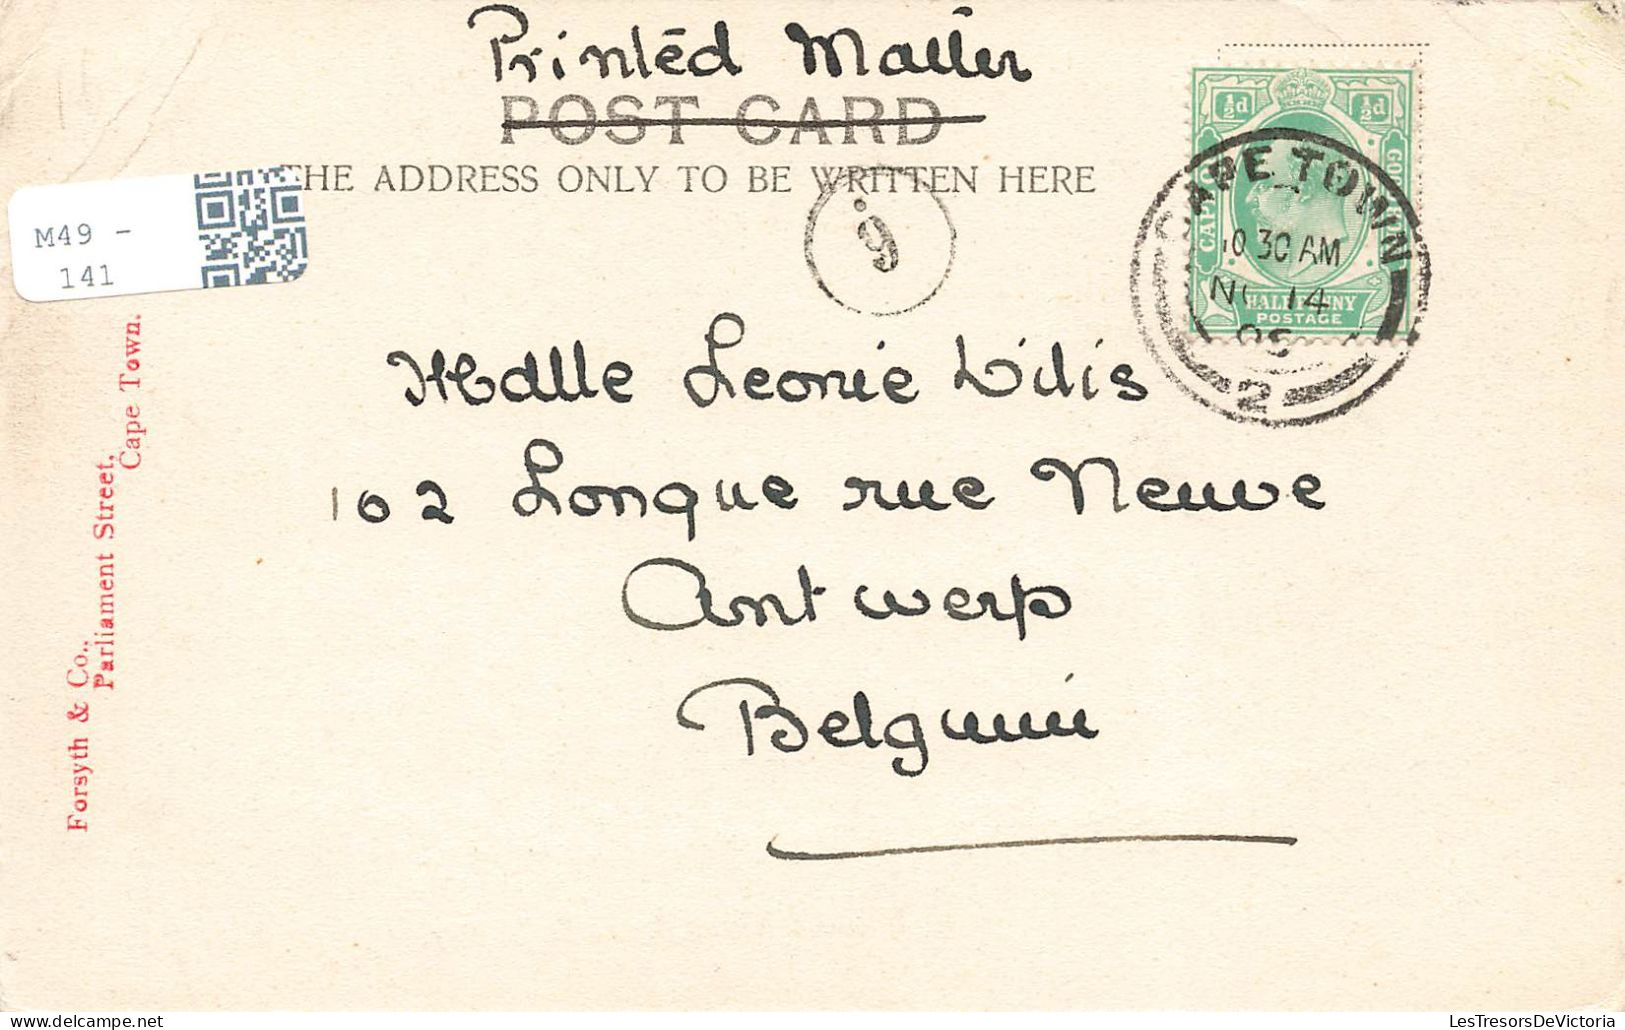 Printed Matter
POST CARD
THE ADDRESS ONLY TO BE WRITTEN HERE
½d ½d
HALFPENNY
POSTAGE
CAPE TOWN
10 30 AM
14
2
9
M49 -
141
Melle Leonie
102 Longue rue Neuve
Antwerp
Belgium
Forsyth & Co.,
Parliament Street,
Cape Town.
LesTresorsDeVictoria